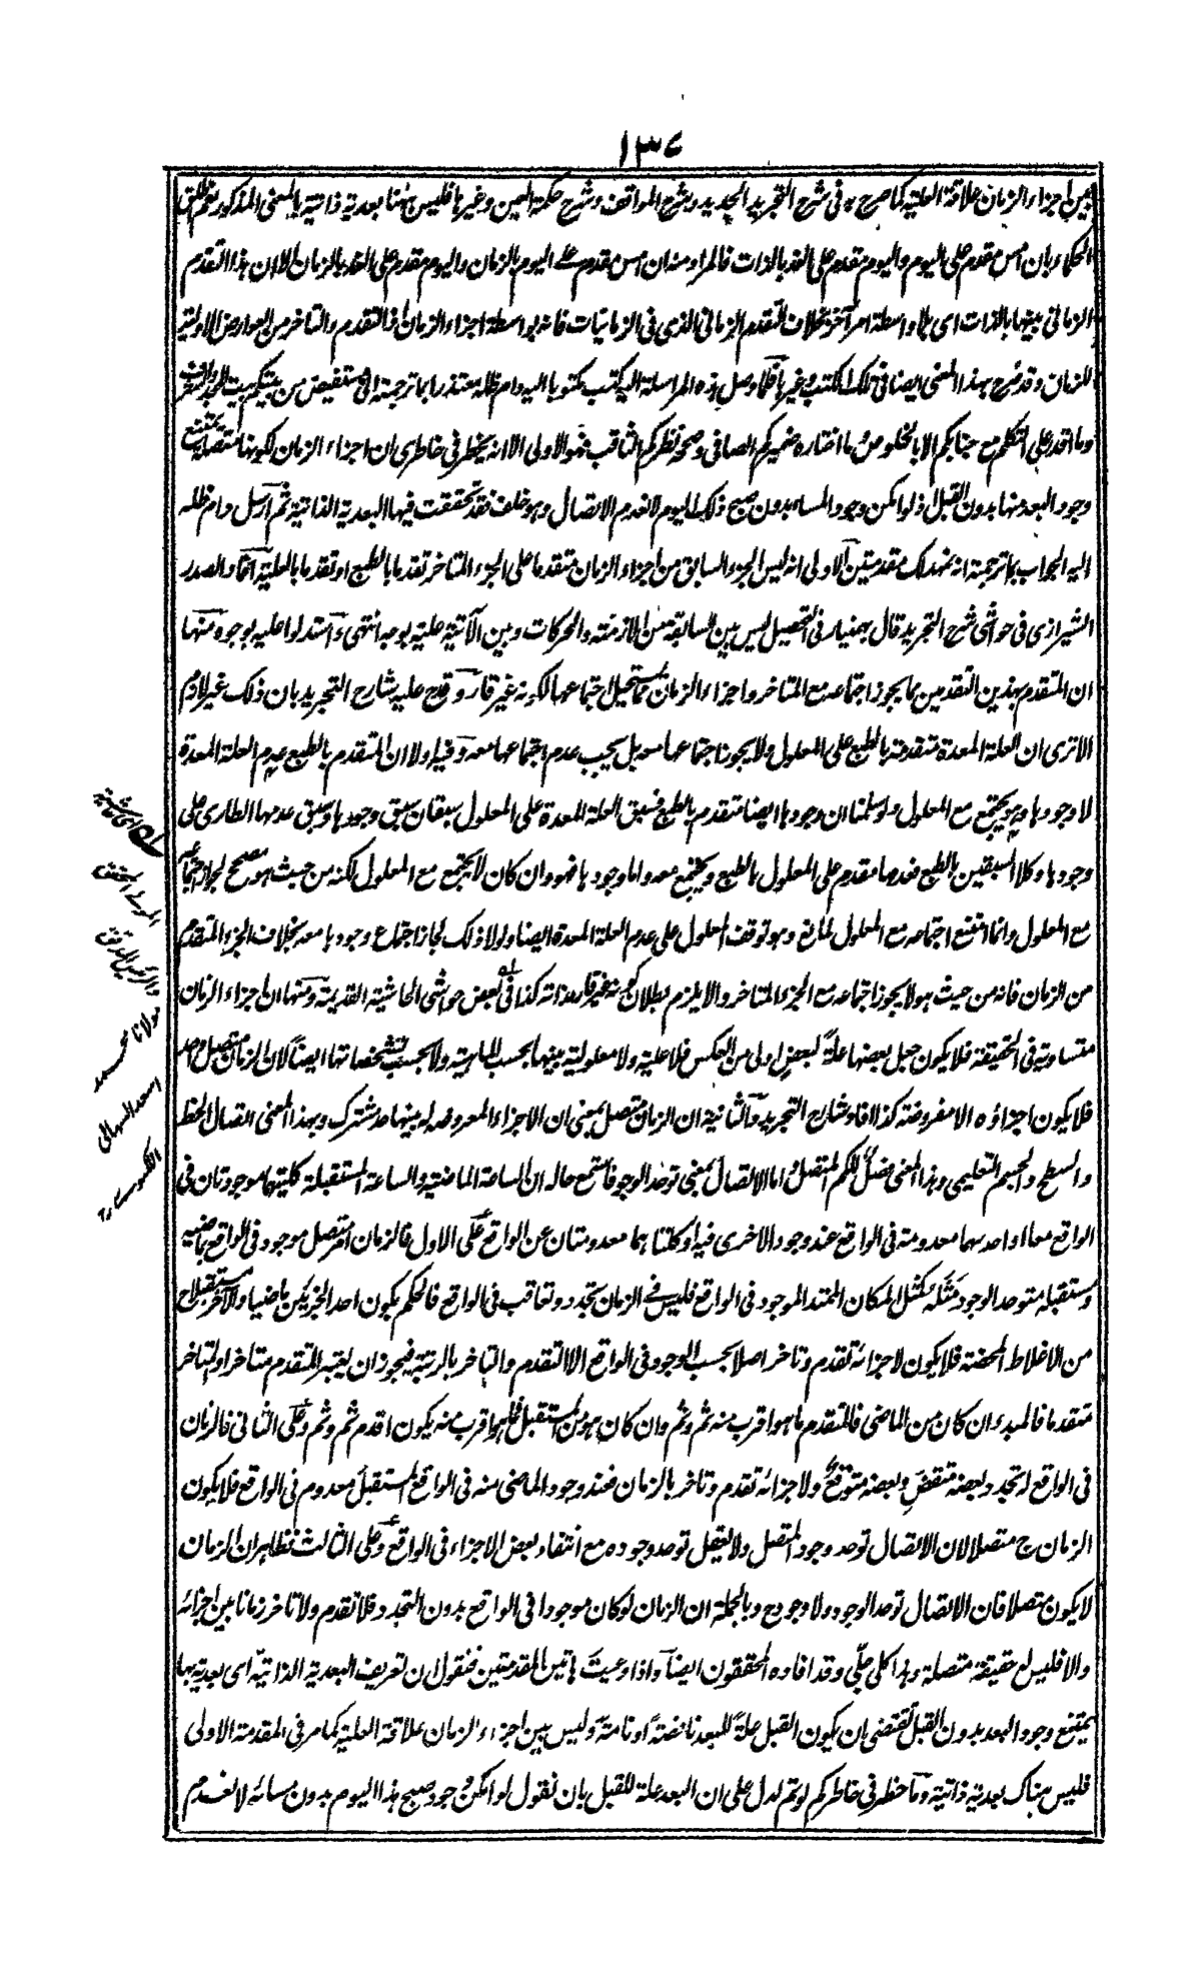 ١٣٧
بين اجزاء الزمان علاقة العلية كما صرح به فى شرح التجريد الجديد وشرح المواقف وشرح حكمة العين وغيرها فليس ههنا بعدية ذاتية بالمعنى المذكور نعم
الحكماء بان امس مقدم على اليوم واليوم مقدم على الغد بالذات فالمراد منه ان امس مقدم على اليوم بالزمان واليوم مقدم على الغد بالزمان الا ان هذا التقدم
الزمانى بينها بالذات اى بلا واسطة امر آخر بخلاف التقدم الزمانى الذى فى الزمانيات فانه بواسطة اجزاء الزمان اذ التقدم والتاخر من العوارض الاولية
للزمان وقد صرح بهذا المعنى ايضا فى تلك الكتب وغيرها فلما وصل هذه المراسلة اليه كتب مكتوبا اليه دام ظله معتذرا بما ترجمته
وما اقدر على التكلم مع جنابكم الا بالخلوص ما اختاره ضميركم الصافى وصححه نظركم الثاقب فهو الاولى الا انه يخطر فى خاطرى ان اجزاء الزمان لكونها متصلة يمتنع
وجود البعد منها بدون القبل اذ لو امكن وجود المساء بدون صبح ذلك اليوم لانعدم الاتصال وهو خلف فقد تحققت فيها البعدية الذاتية ثم ارسل دام ظله
اليه الجواب بما ترجمته انه نمهدك مقدمتين الاولى انه ليس الجزء السابق من اجزاء الزمان متقدما على الجزء المتاخر تقدما بالطبع او تقدما بالعلية افاد الصدر
الشيرازى فى حواشى شرح التجريد قال بهمنيار فى التحصيل ليس بين السابقة من الازمنة والحركات وبين الآتية علية بوجه انتهى واستدلوا عليه بوجوه منها
ان المتقدم بهذين التقدمين مما يجوز اجتماعه مع المتاخر واجزاء الزمان مما يستحيل اجتماعها لكونه غير قار وقدح عليه شارح التجريد بان ذلك غير لازم
الا ترى ان العلة المعدة متقدمة بالطبع على المعلول ولا يجوز اجتماعها معه بل يجب عدم اجتماعها معه وفيه اولا ان المتقدم بالطبع عدم العلة المعدة
لا وجودها وهو يجتمع مع المعلول ولو سلمنا ان وجودها ايضا متقدم بالطبع فسبق العلة المعدة على المعلول سبقان سبق وجودها وسبق عدمها الطارى على
وجودها وكلا السبقين بالطبع فعدمها مقدم على المعلول بالطبع ويجتمع معه واما وجودها فهو وان كان لا يجتمع مع المعلول لكنه من حيث هو مصحح لجواز اجتماعه
مع المعلول وانما امتنع اجتماعه مع المعلول لمانع وهو توقف المعلول على عدم العلة المعدة ايضا ولولا ذلك لجاز اجتماع وجودها معه بخلاف الجزء المتقدم
من الزمان فانه من حيث هو لا يجوز اجتماعه مع الجزء المتاخر والا يلزم بطلان كونه غير قار بذاته كذا فى بعض حواشى الحاشية القديمة ومنها ان اجزاء الزمان
متساوية فى الحقيقة فلا يكون جعل بعضها علة لبعض اولى من العكس فلا علية ولا معلولية بينها بحسب الماهية ولا بحسب تشخصاتها ايضا لان الزمان متصل واحد
فلا يكون اجزاؤه الا مفروضة كذا افاد شارح التجريد والثانية ان الزمان متصل بمعنى ان الاجزاء المعروضه له بينها حد مشترك وبهذا المعنى اتصال الخط
والسطح والجسم التعليمى وهذا المعنى فصل للكم المتصل واما الاتصال بمعنى توحد الوجود فاستمع حاله ان الساعة الماضية والساعة المستقبلة كليتهما موجودتان فى
الواقع معا او احدهما معدومة فى الواقع عند وجود الاخرى فيه او كلتاهما معدومتان عن الواقع على الاول فالزمان امر متصل موجود فى الواقع بماضيه
ومستقبله متوحد الوجود مثله كمثل المكان الممتد الموجود فى الواقع فليس فى الزمان تجدد وتعاقب فى الواقع فالحكم بكون احد الجزئين ماضيا والآخر مستقبلا ح
من الاغلاط المحضة فلا يكون لاجزائه تقدم وتاخر اصلا بحسب الوجود فى الواقع الا التقدم والتاخر بالرتبة فيجوز ان يعتبر المتقدم متاخرا والمتاخر
متقدما فالمبدء ان كان من الماضى فالمتقدم ما هو اقرب منه ثم وثم وان كان هو من المستقبل فما هو اقرب منه يكون اقدم ثم وثم وعلى الثانى فالزمان
فى الواقع له تجدد وبعضه منقض وبعضه متوقع ولاجزائه تقدم وتاخر بالزمان فعند وجود الماضى منه فى الواقع المستقبل معدوم فى الواقع فلا يكون
الزمان ح متصلا لان الاتصال توحد وجود المتصل ولا يعقل توحد وجوده مع انتفاء بعض الاجزاء فى الواقع وعلى الثالث فظاهر ان الزمان
لا يكون متصلا فان الاتصال توحد الوجود ولا وجود ح وبالجملة ان الزمان لو كان موجودا فى الواقع بدون التجدد فلا تقدم ولا تاخر زمانا بين اجزائه
والا فليس له حقيقة متصلة وهذا كلى جلى وقد افاده المحققون ايضا واذا وعيت هاتين المقدمتين فنقول ان تعريف البعدية الذاتية اى بعدية بها
يمتنع وجود البعد بدون القبل تقتضى ان يكون القبل علة للبعد ناقصة او تامة وليس بين اجزاء الزمان علاقة العلية كما مر فى المقدمة الاولى
فليس هناك بعدية ذاتية وما خطر فى خاطركم لو تم لدل على ان البعد علة للقبل بان نقول لو امكن وجود صبح هذا اليوم بدون مسائه لانعدم
له اى حاشية
المحقق
مولانا محمد
اسعد السهالى
اللكنوى ١٢